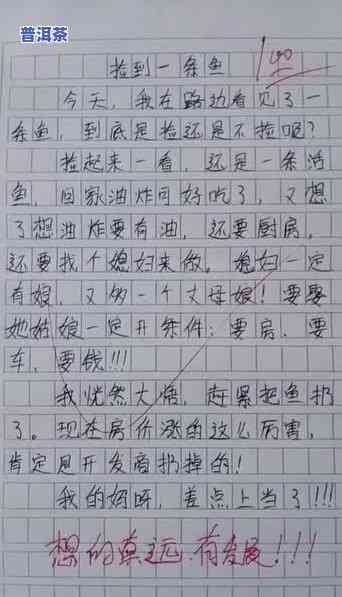 普洱茶
捡到一条鱼
100
今天，我在路边看见了一
条鱼，到底是捡还是不捡呢？
捡起来一看，还是一条活
鱼，回家油炸可好吃了，又想
了想油炸要有油，还要厨房，
还要找个媳妇来做。媳妇一定
有娘，又多一个丈母娘！要娶
她姑娘一定开条件：要房，要
车，要钱！！！
我恍然大悟，赶紧把鱼扔
了。现在房价涨的这么厉害，
肯定是开发商扔掉的！
我的妈呀，差点上当了！！！
想的真远，有发展！！！